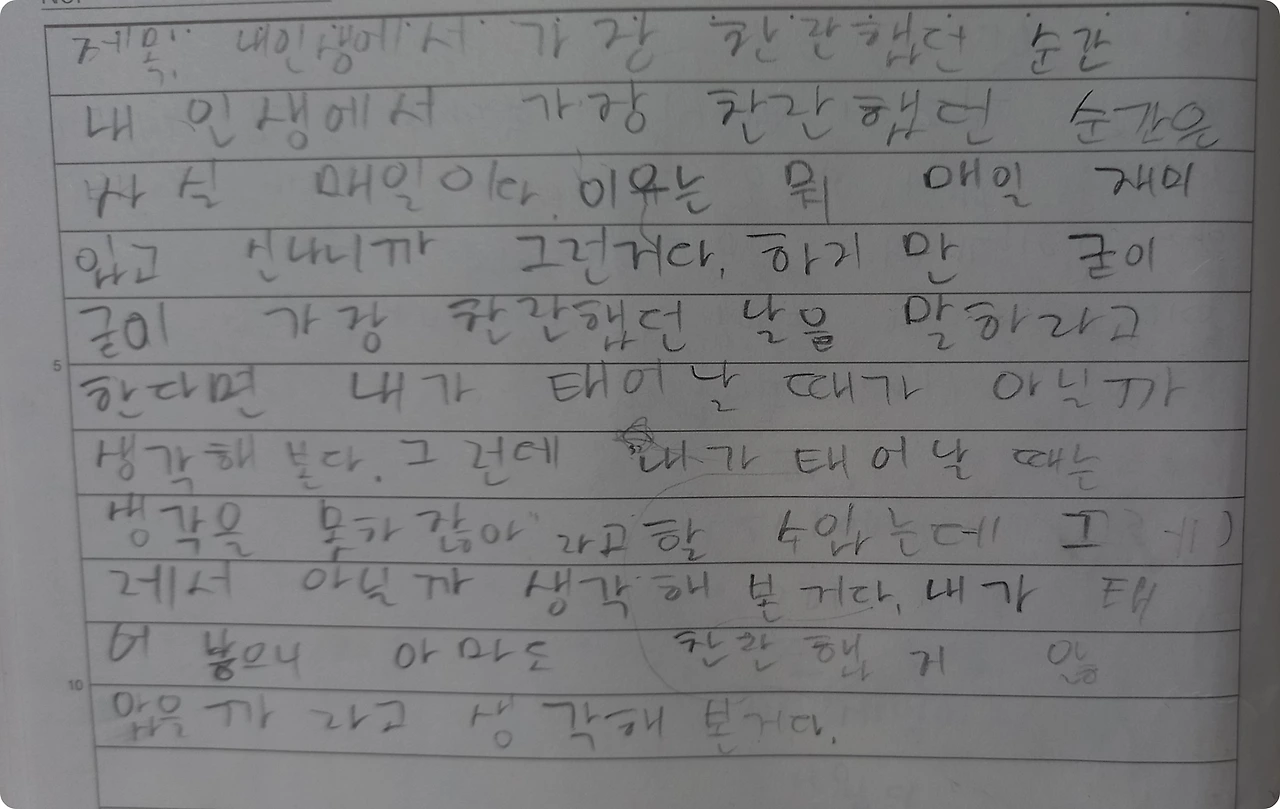 제목: 내인생에서 가장 찬란했던 순간
내 인생에서 가장 찬란했던 순간은
사실 매일이다. 이유는 뭐 매일 재미
있고 신나니까 그런거다. 하지만 굳이
굳이 가장 찬란했던 날을 말하라고
한다면 내가 태어날 때가 아닐까
생각해 본다. 그런데 내가 태어날 때는
생각을 못하잖아 라고할 수있는데 그
래서 아닐까 생각해 본거다. 내가 태
어 아마도 찬란했
있을까 라고 생각해 본거다.
5
10